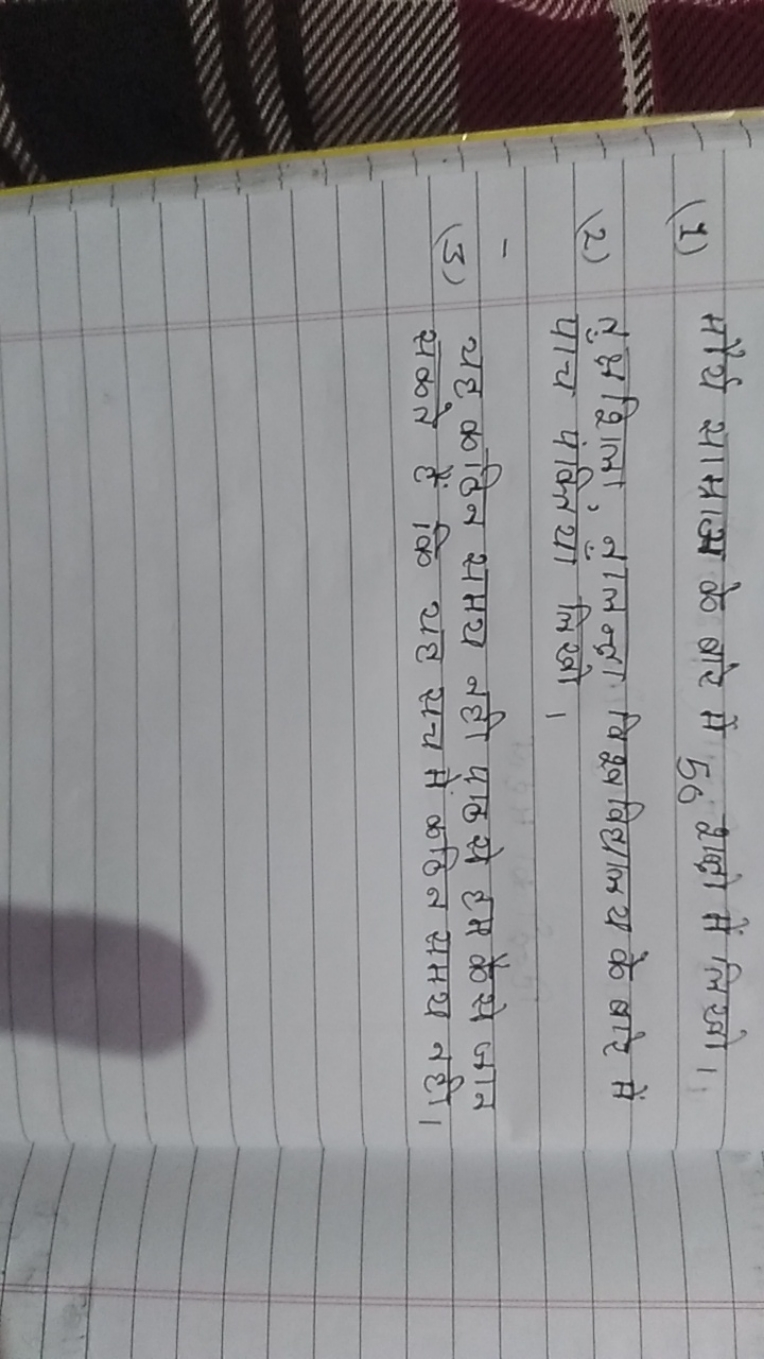 (1) मौर्य साम्राज्य के बारे में 50 शब्दो में लिखो।
(2) तक्षशिला, नालन्दा विश्वविद्यालय के बारे में
पाच पंक्तिया लिखो।
(3) यह कठिन समय नही पाठ से हम कैसे जान
सकते हैं कि यह सच मे कठिन समय नही।